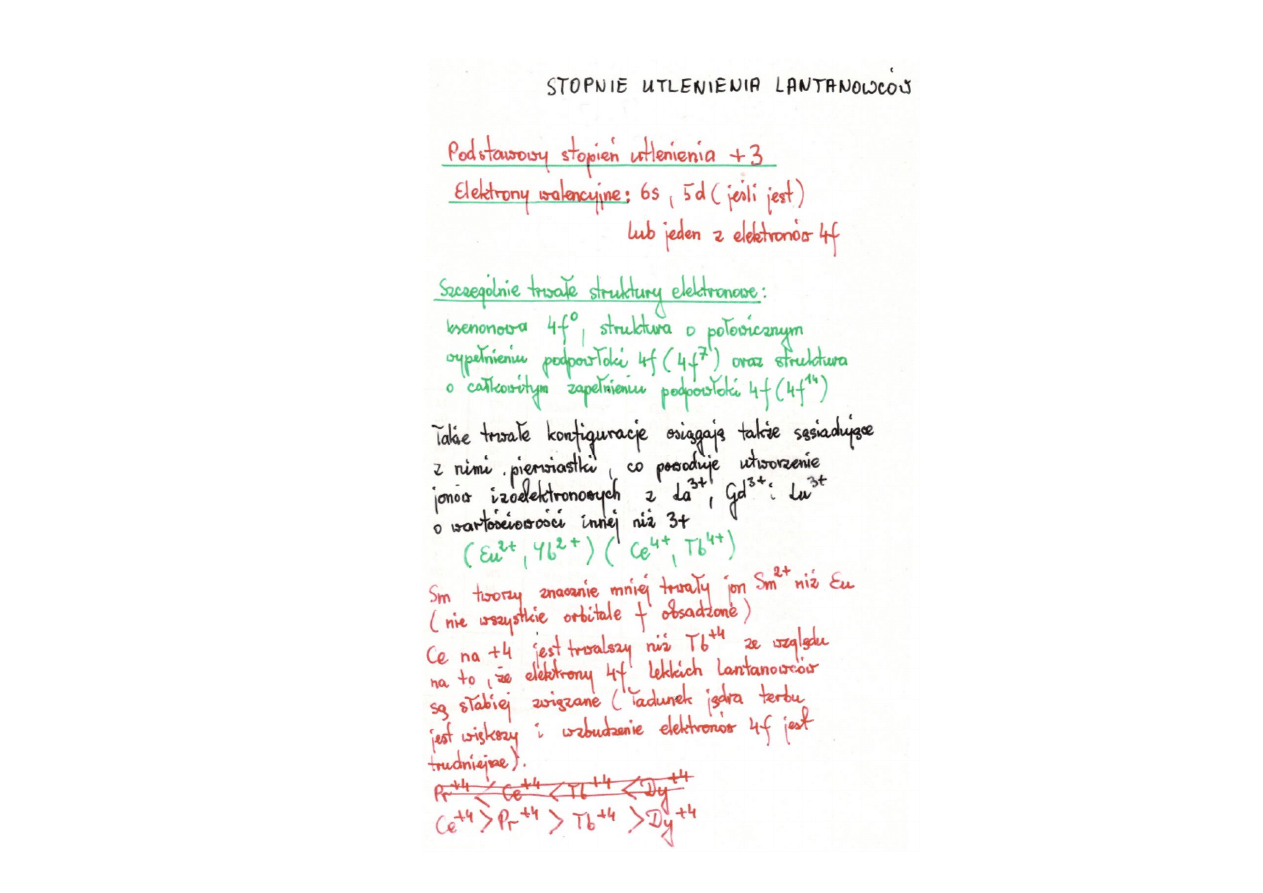 STOPNIE UTLENIENIA LANTANOWCÓW
Podstawowy stopień utlenienia +3
Elektrony walencyjne: 6s, 5d (jeśli jest)
lub jeden z elektronów 4f
Szczególnie trwałe struktury elektronowe:
ksenonowa 4f⁰, struktura o połowicznym
wypełnieniu podpowłoki 4f (4f⁷) oraz struktura
o całkowitym zapełnieniu podpowłoki 4f (4f¹⁴)
Takie trwałe konfiguracje osiągają także sąsiadujące
z nimi pierwiastki, co powoduje utworzenie
jonów izoelektronowych z La³⁺, Gd³⁺ i Lu³⁺
o wartościowości innej niż 3+
(Eu²⁺, Yb²⁺) (Ce⁴⁺, Tb⁴⁺)
Sm tworzy znacznie mniej trwały jon Sm²⁺ niż Eu
(nie wszystkie orbitale f obsadzone)
Ce na +4 jest trwalszy niż Tb⁺⁴ ze względu
na to, że elektrony 4f lekkich lantanowców
są słabiej związane (ładunek jądra terbu
jest większy i wzbudzenie elektronów 4f jest
trudniejsze).
Pr⁺⁴ < Ce⁺⁴ < Tb⁺⁴ < Dy⁺⁴
Ce⁺⁴ > Pr⁺⁴ > Tb⁺⁴ > Dy⁺⁴